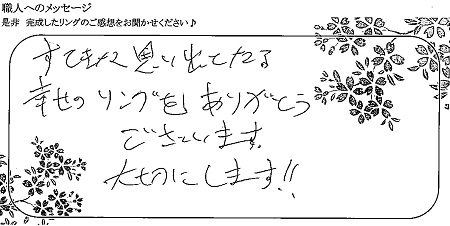 職人へのメッセージ
是非 完成したリングのご感想をお聞かせください♪
すてきな思い出になる
幸せのリングをありがとう
ございます。
大切にします!!